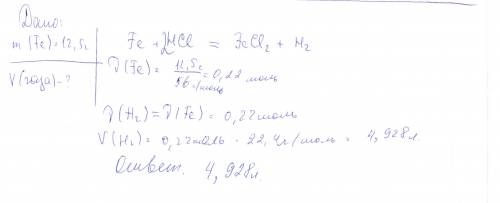 Дано:
m (Fe) = 12,5г
V(газа) - ?
Fe + 2HCl = FeCl₂ + H₂
ν(Fe) = 12,5г / 56 г/моль = 0,22 моль
ν(H₂) = ν(Fe) = 0,22 моль
V(H₂) = 0,22 моль · 22,4 г/моль = 4,928 л
Ответ. 4,928 л.